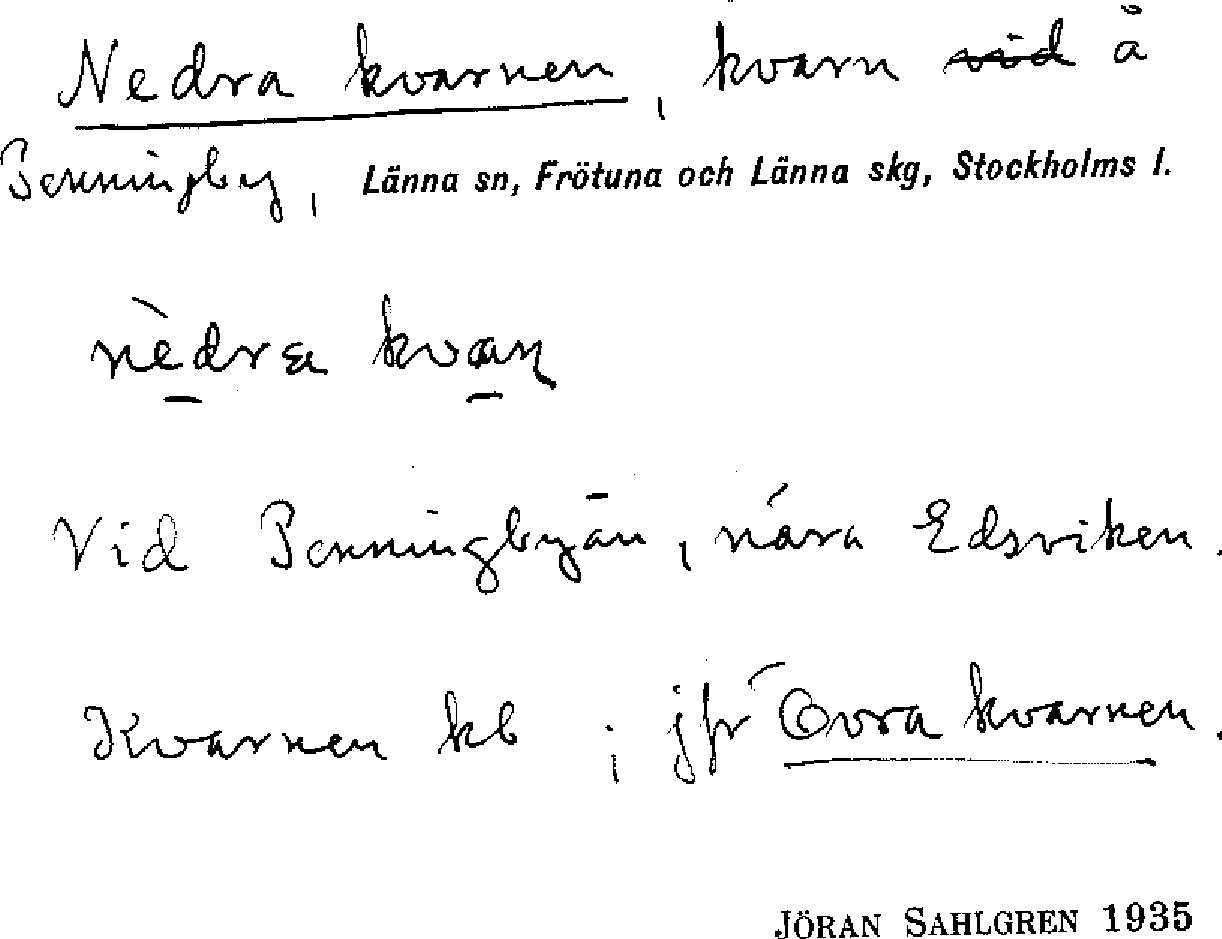 Nedra kvarnen, kvarn ~~vid~~ å
Penningby, Länna sn, Frötuna och Länna skg, Stockholms l.
nèdra kvaɳ
Vid Penningbyån, nära Edsviken.
Kvarnen kb ; jfr Övra kvarnen.
JÖRAN SAHLGREN 1935